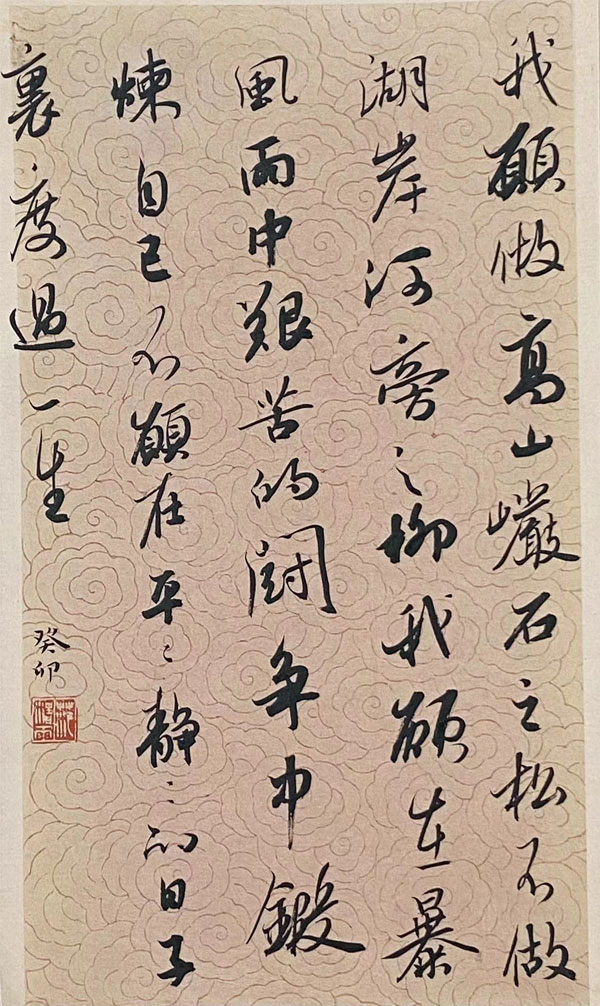 我願做高山巖石之松不做
湖岸河旁之柳我願在暴
風雨中艱苦的鬪争中鍛
煉自己不願在平〻靜〻的日子
裏度過一生
癸卯